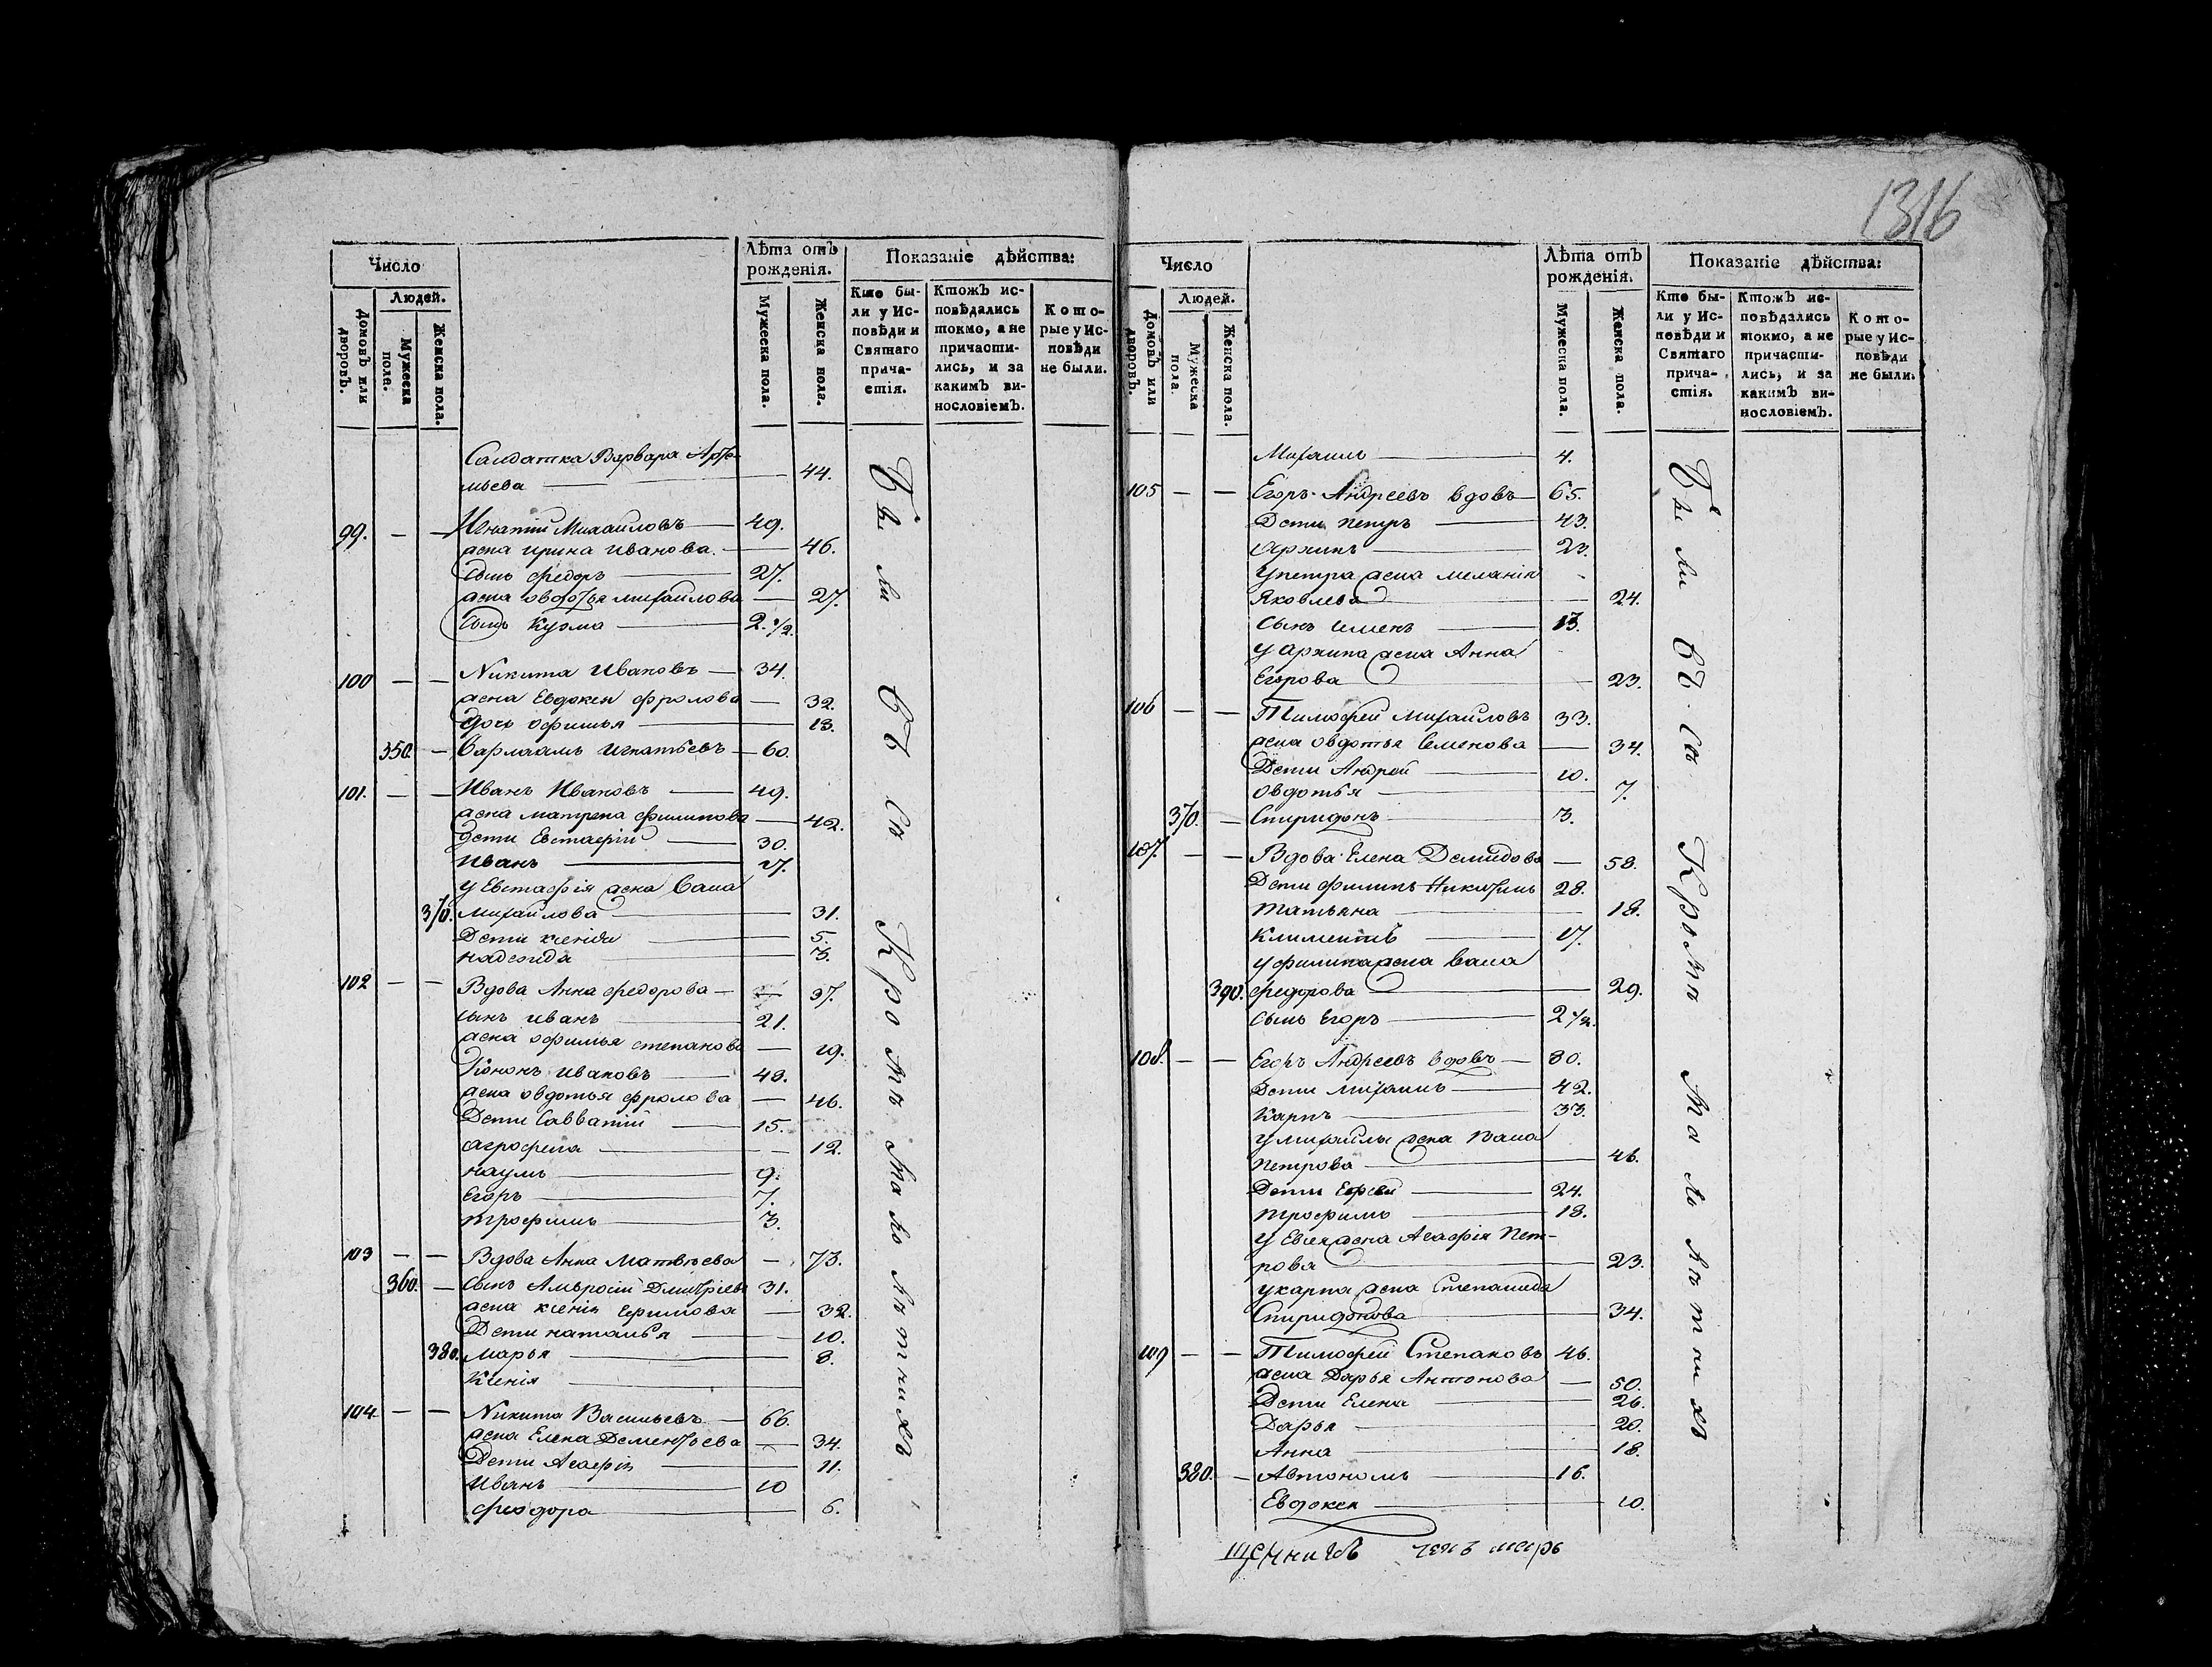 1316
Число
Людей.
Домовъ или дворовъ.
Мужеска пола.
Женска пола.
Лѣта отъ рожденія.
Мужеска пола.
Женска пола.
Показаніе дѣйства:
Кто бы-
ли у Ис-
повѣди и
Святаго
прича-
стія.
Ктожъ ис-
повѣдались
токмо, а не
причасти-
лись, и за
какимъ ви-
нословіемъ.
Кото-
рые у Ис-
повѣди
не были.
Салдатка Варвара Арте-
мьева — 44.
99. — — Игнатій Михаиловъ — 49.
жена ирина иванова. — 46.
сынъ федоръ — 27.
жена овдотья михаилова — 27.
Сынъ Кузма — 2.1/2.
100 — — Никита Ивановъ — 34.
жена Евдокея фролова — 32.
дочь офимья — 13.
350. — Варлаамъ игнатьевъ — 60.
101. — — Иванъ Ивановъ — 49.
жена матрена филипова — 42.
дети Евстафій — 30.
Иванъ — 27.
у Евстафія жена Васа
370. михайлова — 31.
Дети ксенія — 5.
надежда — 3.
102 — — Вдова Анна федорова — 37.
сынъ иванъ — 21.
жена офимья степанова — 19.
Кононъ ивановъ — 48.
жена овдотья фролова — 46.
Дети Савватій — 15.
агрофена — 12.
наумъ — 9.
Егоръ — 7.
трофимъ — 3.
103 — — Вдова Анна Матвѣева — 73.
360. — сынъ Амвросій Дмитріевъ 31.
жена ксенія Ефимова — 32.
Дети наталья — 10.
380. Марья — 8.
Ксенія —
104 — — Никита Васильевъ — 66.
жена Елена Дементьева — 34.
Дети Агафія — 11.
Иванъ — 10
феодора — 6.
Бы ли всѣ Кромѣ малолѣтнихъ
Число
Людей.
Домовъ или дворовъ.
Мужеска пола.
Женска пола.
Лѣта отъ рожденія.
Мужеска пола.
Женска пола.
Показаніе дѣйства:
Кто бы-
ли у Ис-
повѣди и
Святаго
прича-
стія.
Ктожъ ис-
повѣдались
токмо, а не
причасти-
лись, и за
какимъ ви-
нословіемъ.
Кото-
рые у Ис-
повѣди
не были.
Михаилъ — 4.
105 — — Егоръ Андреевъ вдовъ — 65.
Дети петръ — 43.
Архипъ — 23.
у петра жена меланія
Яковлева — 24.
Сынъ семенъ — 13.
у архипа жена Анна
Егорова — 23.
106 — — Тимофей Михайловъ 33.
жена овдотья Семенова — 34.
Дети Андрей — 10.
овдотья — 7.
370. — Спиридонъ — 3.
107. — — Вдова Елена Демидова — 58.
Дети филипъ Никитинъ 28.
Татьяна — 18.
Климентъ — 17.
у филипа жена васа
390. федорова — 29.
сынъ Егоръ — 2 1/2.
108. — — Егоръ Андреевъ вдовъ — 80.
Дети михаилъ — 42.
Карпъ — 33.
у михайлы жена васа
Петрова — 46.
Дети Евсей — 24.
трофимъ — 18.
у Евсея жена Агафія Пет-
рова — 23.
у карпа жена Степанида
Спиридонова — 34.
109 — — Тимофей Степановъ 46.
жена Дарья Антонова — 50.
Дети Елена — 26.
Дарья — 20.
Анна — 18.
380. — Автономъ — 16.
Евдокея — 10.
Бы ли всѣ Кромѣ малолѣтнихъ